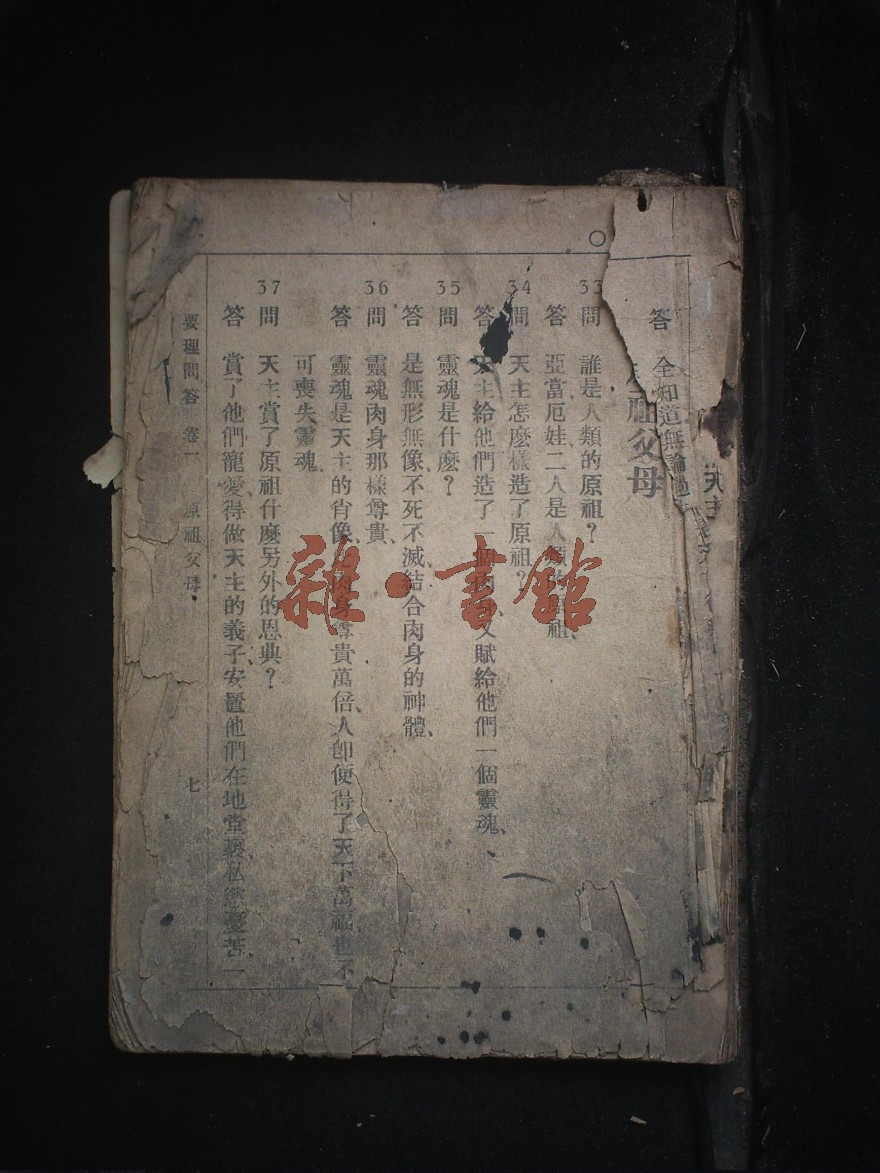 ○
答 全知道無論
祖父母
33 問 誰是人類的原祖？
答 亞當、厄娃、二人是人類的原祖、
34 問 天主怎麽樣造了原祖？
答 天主給他們造了一個肉身、又賦給他們一個靈魂、
35 問 靈魂是什麽？
答 是無形無像、不死不滅、結合肉身的神體、
36 問 靈魂肉身那樣尊貴、
答 靈魂是天主的肖像、比肉身尊貴萬倍、人卽便得了天下萬福、也不
可喪失靈魂、
37 問 天主賞了原祖什麽另外的恩典？
答 賞了他們寵愛、得做天主的義子、安置他們在地堂、私慾憂苦、一
要理問答 卷一 原祖父母 七
雜·書館